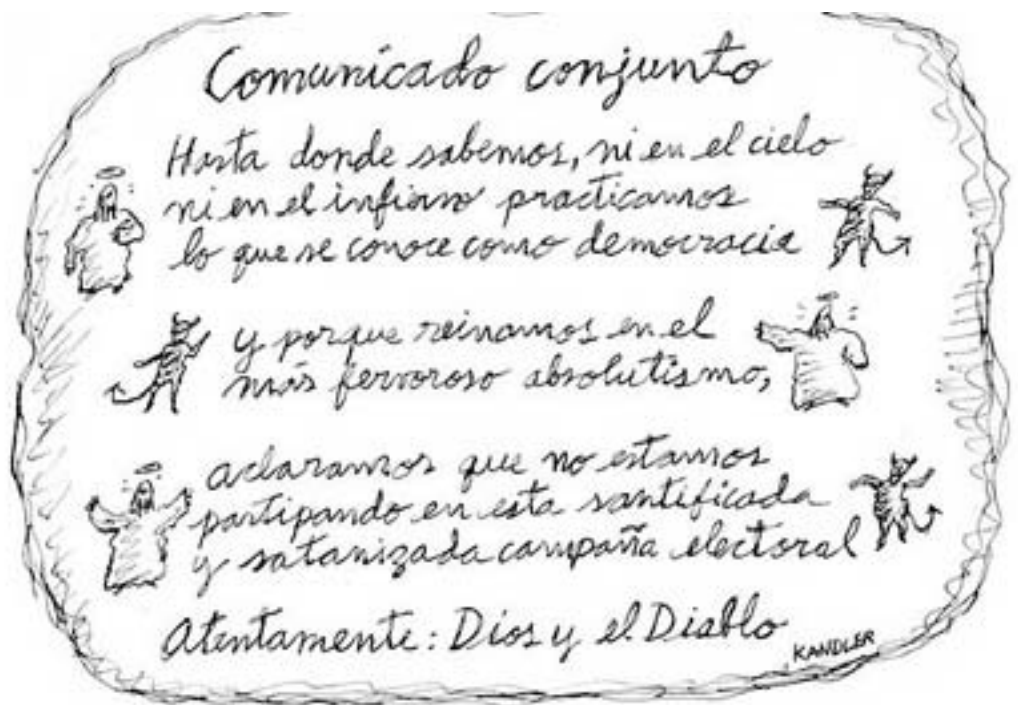 Comunicado conjunto
Hasta donde sabemos, ni en el cielo
ni en el infierno practicamos
lo que se conoce como democracia
y porque reinamos en el
más fervoroso absolutismo,
aclaramos que no estamos
partipando en esta santificada
y satanizada campaña electoral
Atentamente: Dios y el Diablo
KANDLER